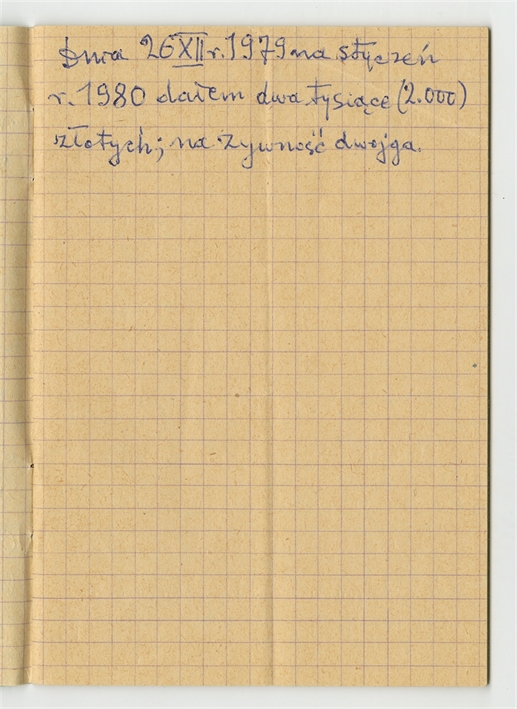 Dnia 26 XII r. 1979 na styczeń
r. 1980 dałem dwa tysiące (2.000)
złotych; na żywność dwojga.